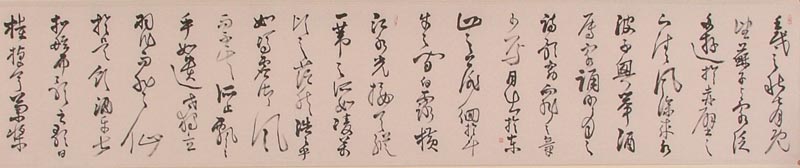 壬戌之秋七月既
望蘇子與客泛
舟遊於赤壁之
下清風徐來水
波不興舉酒
屬客誦明月之
詩歌窈窕之章
少焉月出於東
山之上徘徊於斗
牛之間白露橫
江水光接天縱
一葦之所如凌萬
頃之茫然浩浩乎
如馮虛御風
而不知其所止飄飄
乎如遺世獨立
羽化而登仙
於是飲酒樂甚
扣舷而歌之歌曰
桂棹兮蘭槳